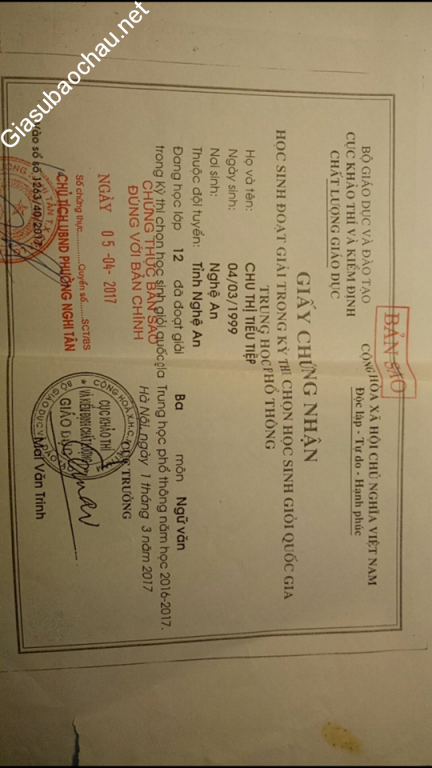 Giasubaochau.net
BẢN SAO
BỘ GIÁO DỤC VÀ ĐÀO TẠO
CỤC KHẢO THÍ VÀ KIỂM ĐỊNH
CHẤT LƯỢNG GIÁO DỤC
CỘNG HÒA XÃ HỘI CHỦ NGHĨA VIỆT NAM
Độc lập - Tự do - Hạnh phúc
GIẤY CHỨNG NHẬN
HỌC SINH ĐOẠT GIẢI TRONG KỲ THI CHỌN HỌC SINH GIỎI QUỐC GIA
TRUNG HỌC PHỔ THÔNG
Họ và tên: CHU THỊ TIỂU TIỆP
Ngày sinh: 04/03/1999
Nơi sinh: Nghệ An
Thuộc đội tuyển: Tỉnh Nghệ An
Đang học lớp 12 đã đoạt giải Ba môn Ngữ văn
trong Kỳ thi chọn học sinh giỏi quốc gia Trung học phổ thông năm học 2016-2017.
CHỨNG THỰC BẢN SAO
ĐÚNG VỚI BẢN CHÍNH
Hà Nội, ngày 1 tháng 3 năm 2017
CỤC TRƯỞNG
NGÀY 05-04-2017
Số chứng thực.........Quyển số.......SCT/BS
CHỦ TỊCH UBND PHƯỜNG NGHI TÂN
CỤC KHẢO THÍ
VÀ KIỂM ĐỊNH CHẤT LƯỢNG
GIÁO DỤC
Vào sổ số 1263/40/2017
Mai Văn Trinh